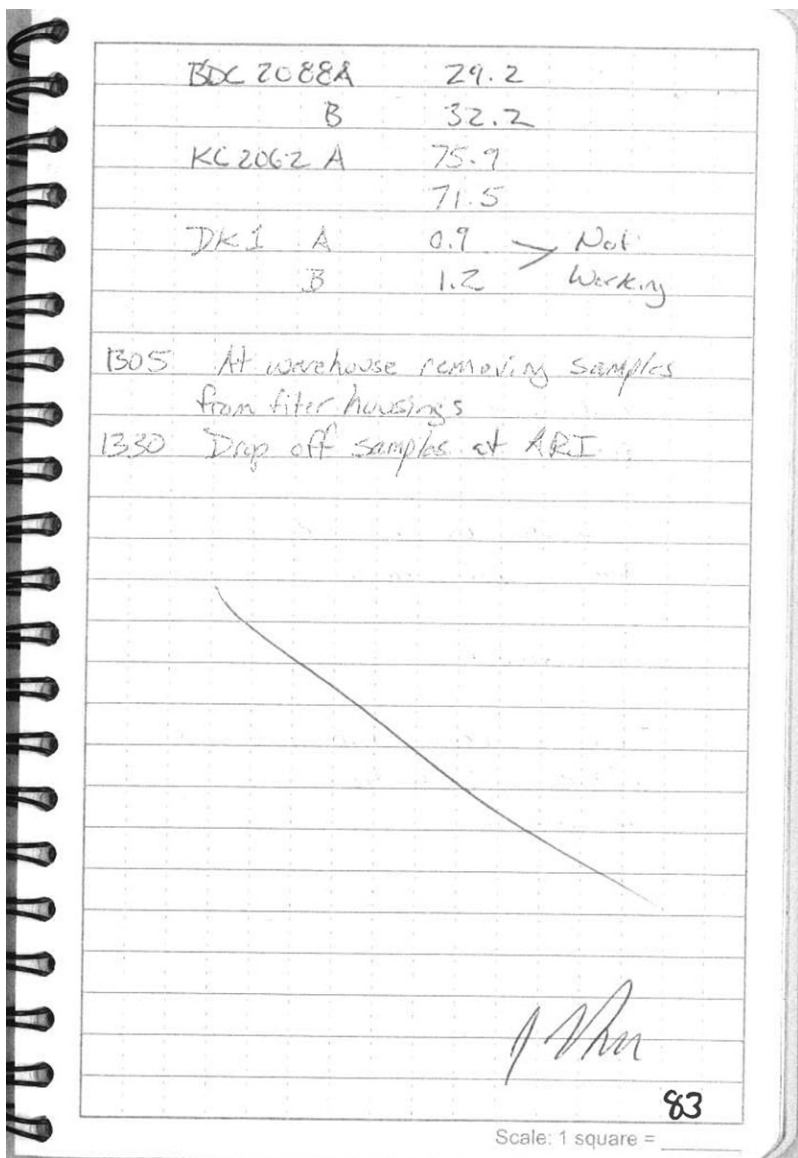 BDC 2088A 29.2
B 32.2
KC2062 A 75.9
71.5
DK1 A 0.9 Not
B 1.2 Working
1305 At warehouse removing samples
from fiter housings
1330 Drop off samples at ARI
83
Scale: 1 square =